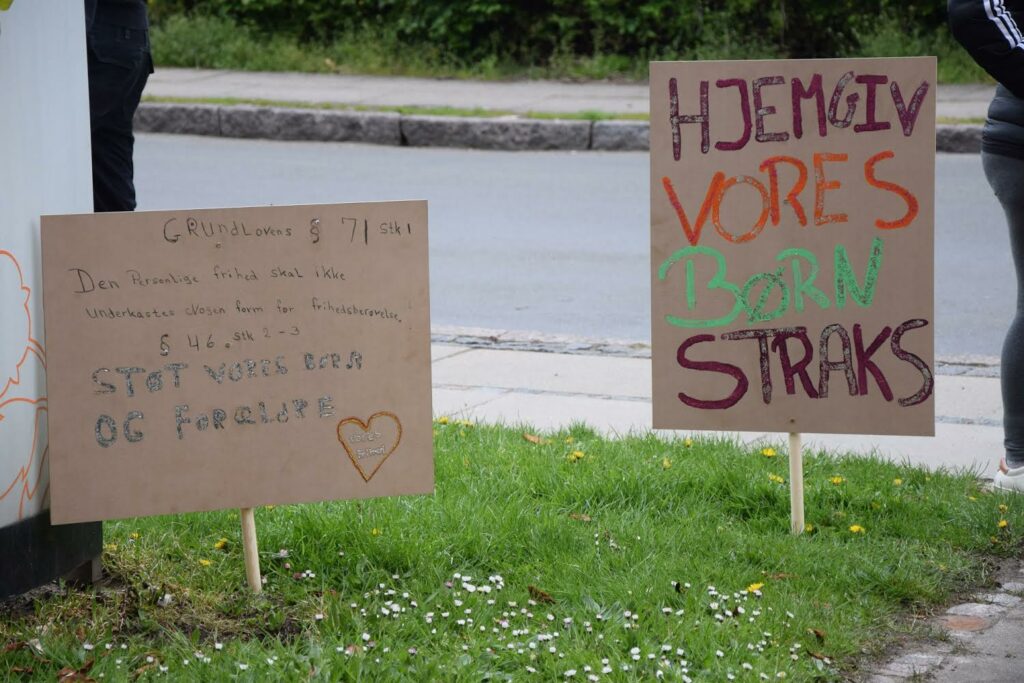 GRUNDLovens § 71 stk 1
Den Personlige frihed skal ikke
underkastes Nogen form for frihedsberøvelse.
§ 46. stk 2-3
STØT VORES BØRN
OG FORÆLDRE
HJEMGIV
VORES
BØRN
STRAKS